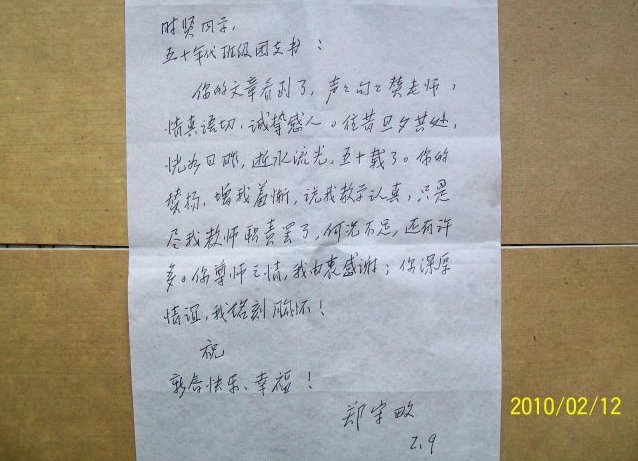 时贤同学,
五十年代班级团支书:
你的文章看到了,声々句々赞老师,
情真语切,诚挚感人。往昔旦夕共处,
恍如日昨,逝水流光,五十载了。你的
赞扬,增我羞惭,说我教学认真,只是
尽我教师职责罢了,何况不足,还有许
多。你尊师之情,我由衷感谢;你深厚
情谊,我铭刻胸怀!
祝
新春快乐、幸福!
郑宇
2.9
2010/02/12